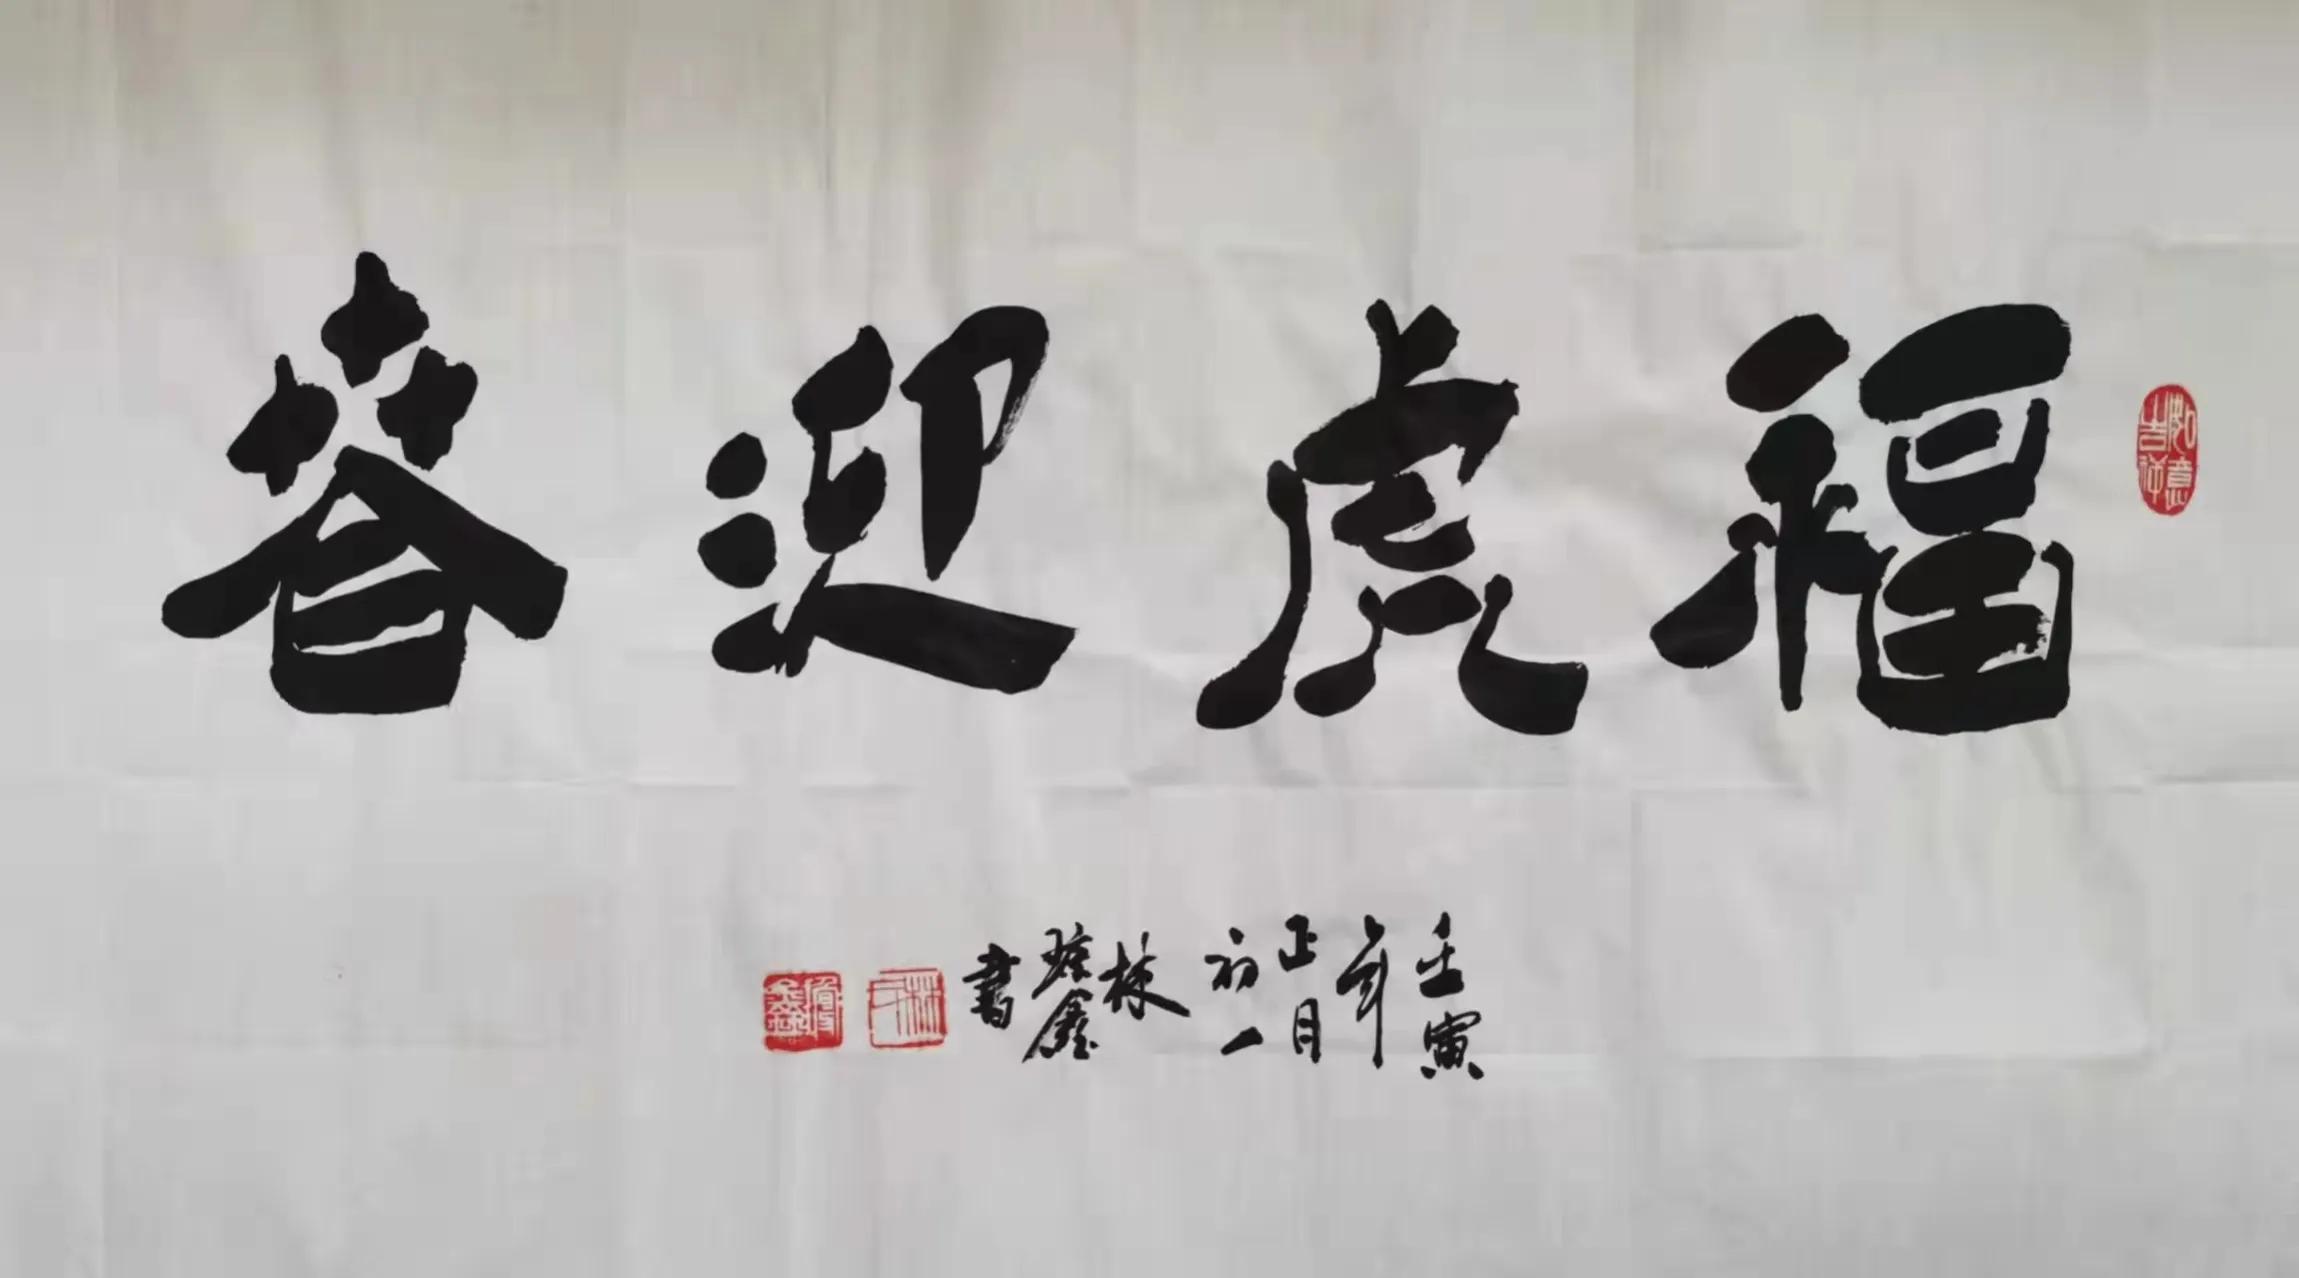 福虎迎春
壬寅
年
正月
初一
林
琼鑫
書
如意
吉祥